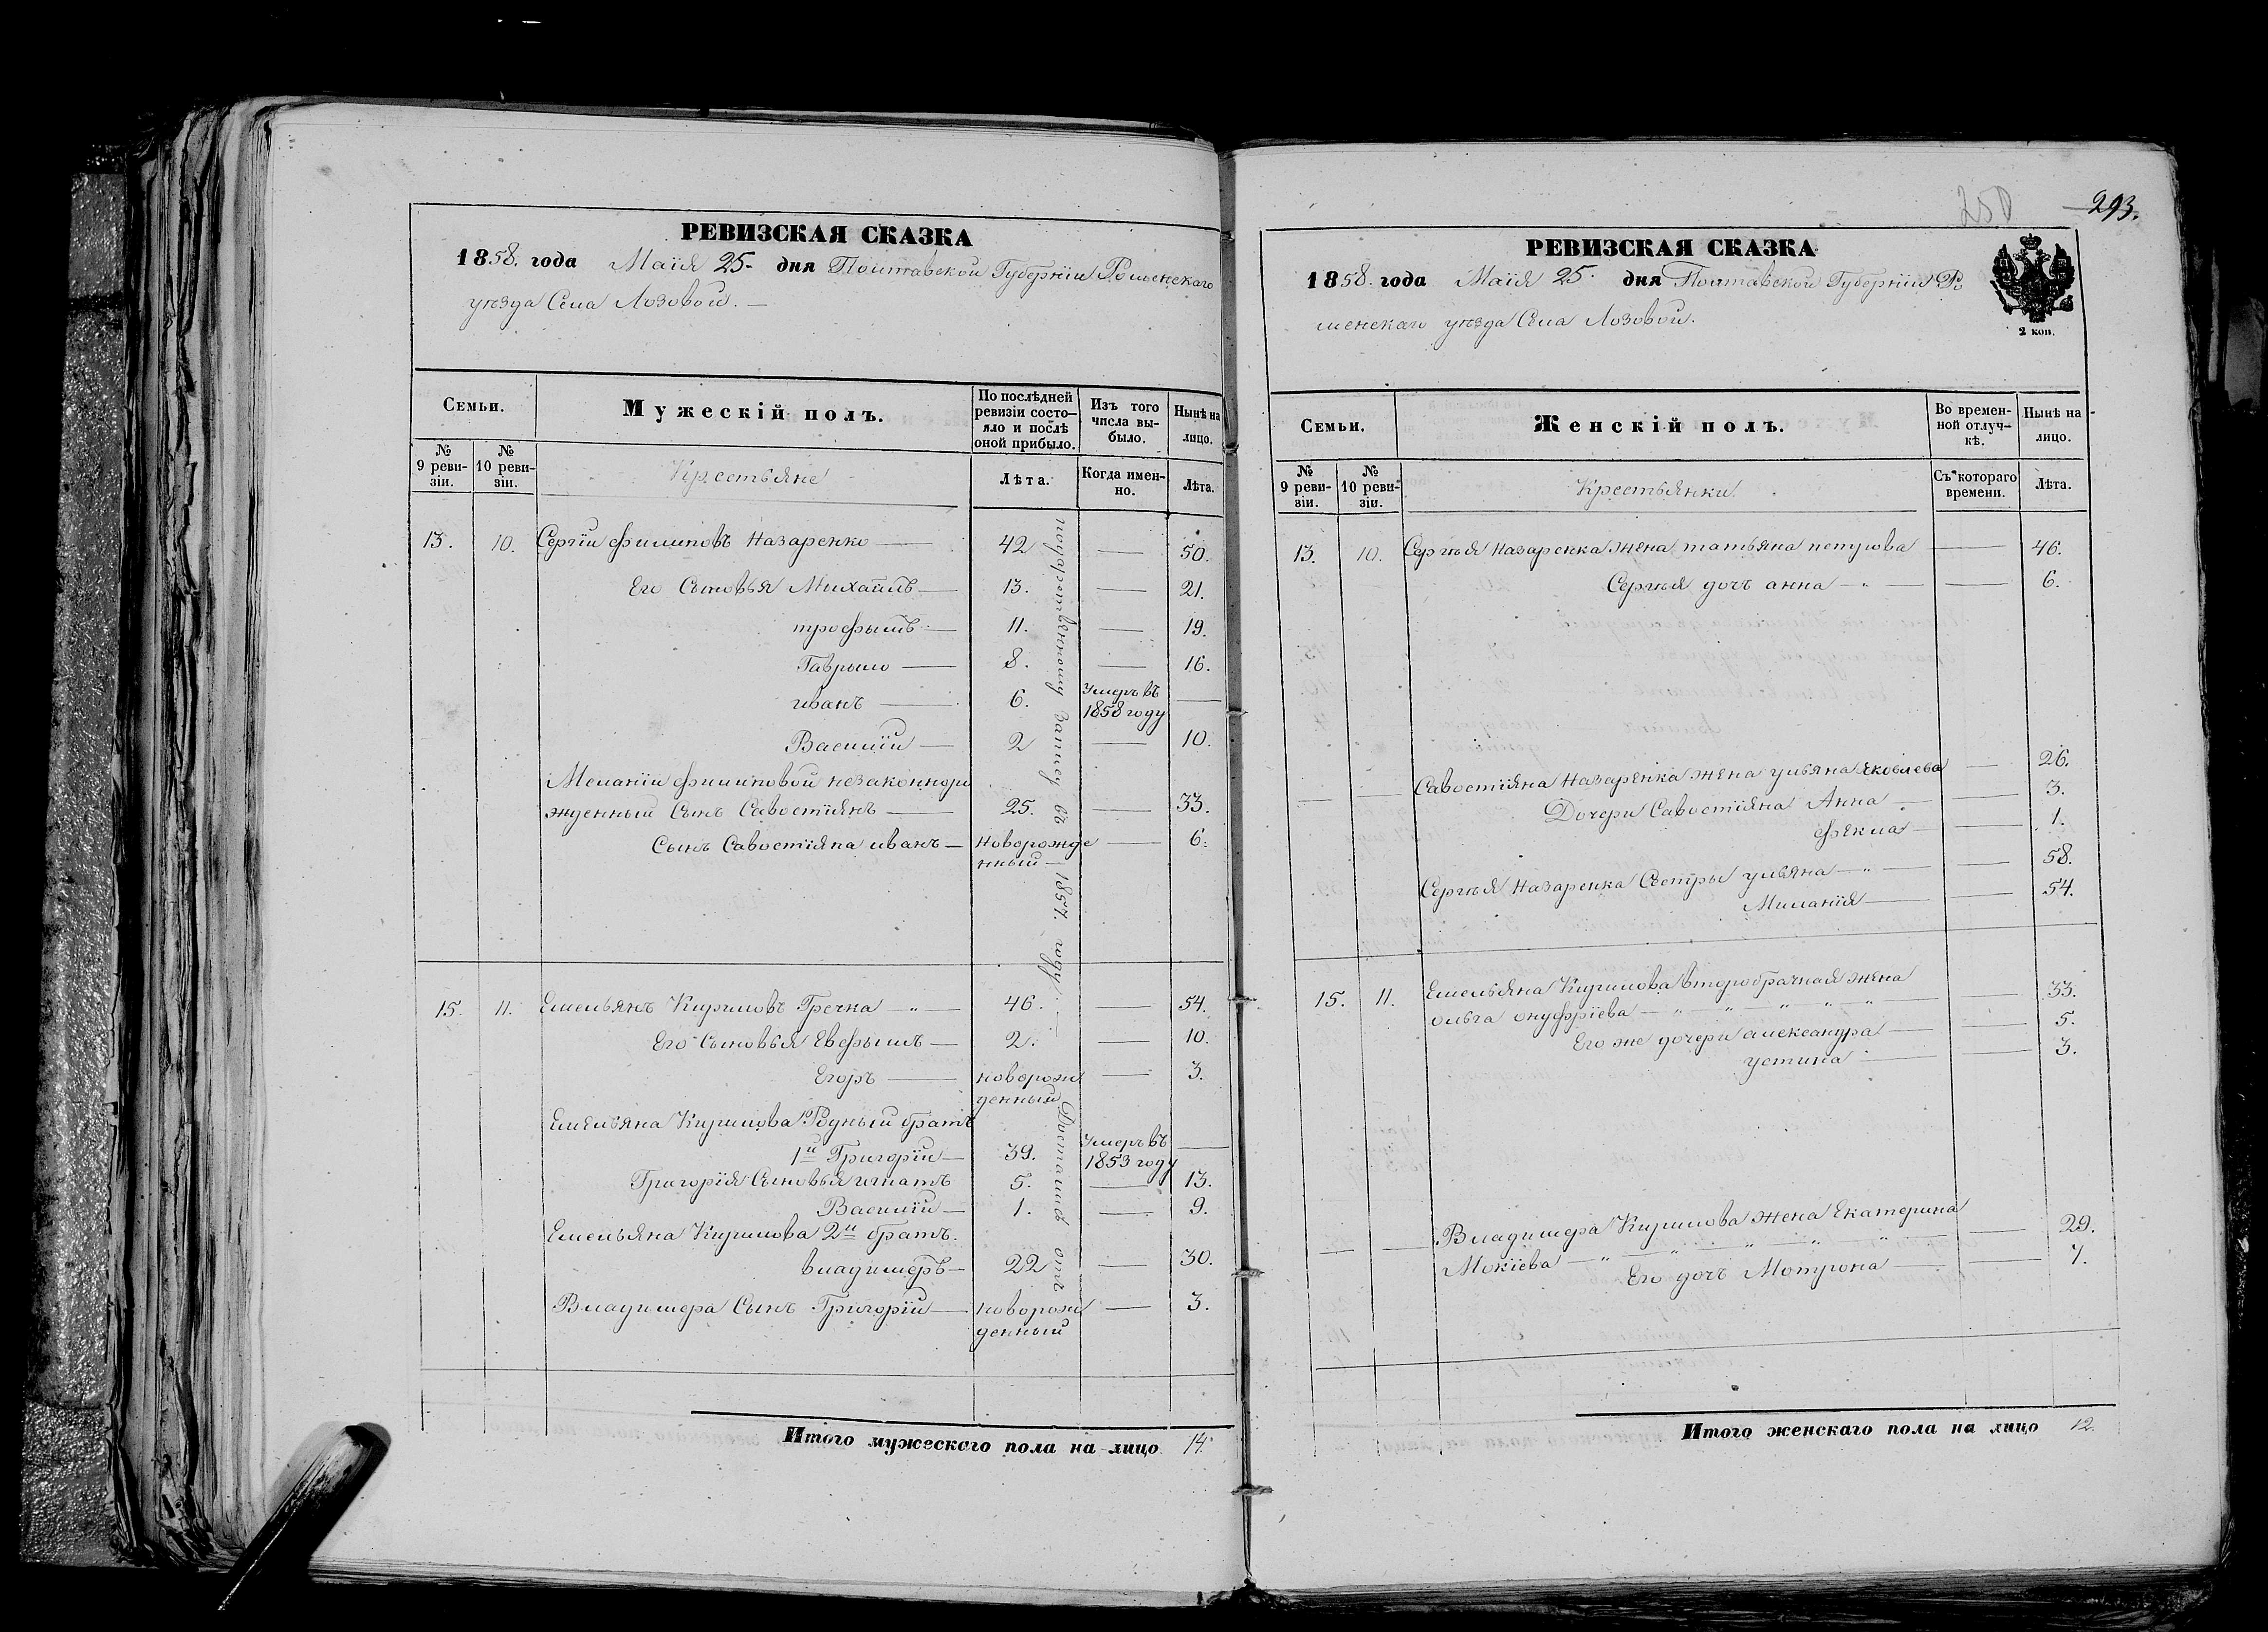 РЕВИЗСКАЯ СКАЗКА
1858. года Маія 25- дня Полтавской Губерніи Роменскаго
уѣзда Села Лозовой. —
Семьи.
Мужескій полъ.
По послѣдней
ревизіи состо-
яло и послѣ
оной прибыло.
Изъ того
числа вы-
было.
Нынѣ на
лицо.
№
9 реви-
зіи.
№
10 реви-
зіи.
Крестьяне
Лѣта.
Когда имен-
но.
Лѣта.
13. 10. Сергій Филиповъ Назаренко — 42 — 50.
Его Сыновья Михайлъ — 13. — 21.
трофымъ — 11. — 19.
Гаврыло — 8. — 16.
иванъ — 6. Умеръ въ
1858 году —
Василій — 2 — 10.
Меланіи Филиповой незаконноро
жденный Сынъ Савостіянъ — 25. — 33.
Сынъ Савостіяна иванъ — новорожде
нный — — 6.
15. 11. Емельянъ Кириловъ Гречка — „ — 46. — 54.
Его Сыновья Евфымъ — 2. — 10.
Егоръ — новорож
денный — 3.
Емельяна Кирилова Родный братъ
1й Григорій — 39. Умеръ въ
1853 году —
Григорія Сыновья игнатъ 5. — 13.
Василій — 1. — 9.
Емельяна Кирилова 2й братъ.
владимеръ — 22 — 30.
Владимера Сынъ Григорій — новорож
денный — 3.
Достались отъ
подарственному Запису въ 1857. году. —
Итого мужескаго пола на-лицо 14.
250
293.
РЕВИЗСКАЯ СКАЗКА
1858. года Маія 25. дня Полтавской Губерніи Ро
менскаго уѣзда Села Лозовой.
2 коп.
Семьи.
Женскій полъ.
Во времен-
ной отлуч-
кѣ.
Нынѣ на
лицо.
№
9 реви-
зіи.
№
10 реви-
зіи.
Крестьянки
Съ котораго
времени.
Лѣта.
13. 10. Сергѣя Назаренка жена татьяна петрова — 46.
Сергѣя дочъ анна — „ — — 6.
— — Савостіяна Назаренка жена ульяна Яковлева — 26.
Дочери Савостіяна Анна — — 3.
Фекла — — 1.
Сергѣя Назаренка Сестры ульяна — „ — — 58.
Миланія — — 54.
15. 11. Емельяна Кирилова второбрачная жена
ольга онуфріева — „ — „ „ „ „ — 33.
Его же дочери александра — — 5.
устина — — 3.
— — Владимера Кирилова жена Екатерина
Мокіева — „ — „ — „ — „ — „ — — 29.
Его дочъ Мотрона — — 7.
Итого женскаго пола на лицо 12.